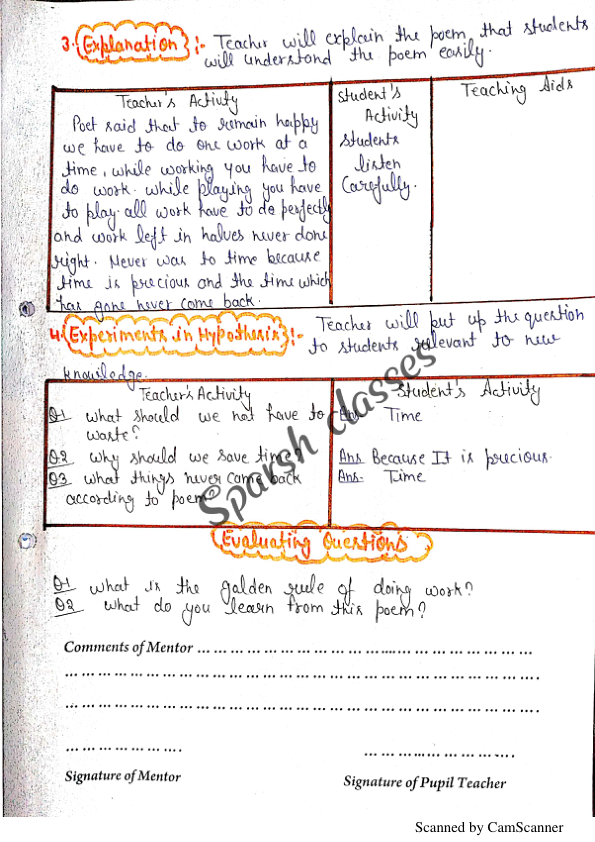 3. Explanation :- Teacher will explain the poem, that students
will understand the poem easily.
Teacher's Activity
Poet said that to remain happy
we have to do one work at a
time, while working you have to
do work. while playing you have
to play. all work have to do perfectly
and work left in halves never done
right. Never was to time because
time is precious and the time which
has gone never come back.
Student's
Activity
Students
listen
Carefully.
Teaching Aids
4. Experiments in Hypothesis :- Teacher will put up the question
to students relevant to new
knowledge.
Teacher's Activity
Q1 what should we not have to
waste?
Q2 why should we save time?
Q3 what things never came back
according to poem?
Student's Activity
Ans Time
Ans Because It is precious.
Ans. Time
Sparsh classes
Evaluating Questions
Q1 what is the golden rule of doing work?
Q2 what do you learn from this poem?
Comments of Mentor
Signature of Mentor
Signature of Pupil Teacher
Scanned by CamScanner